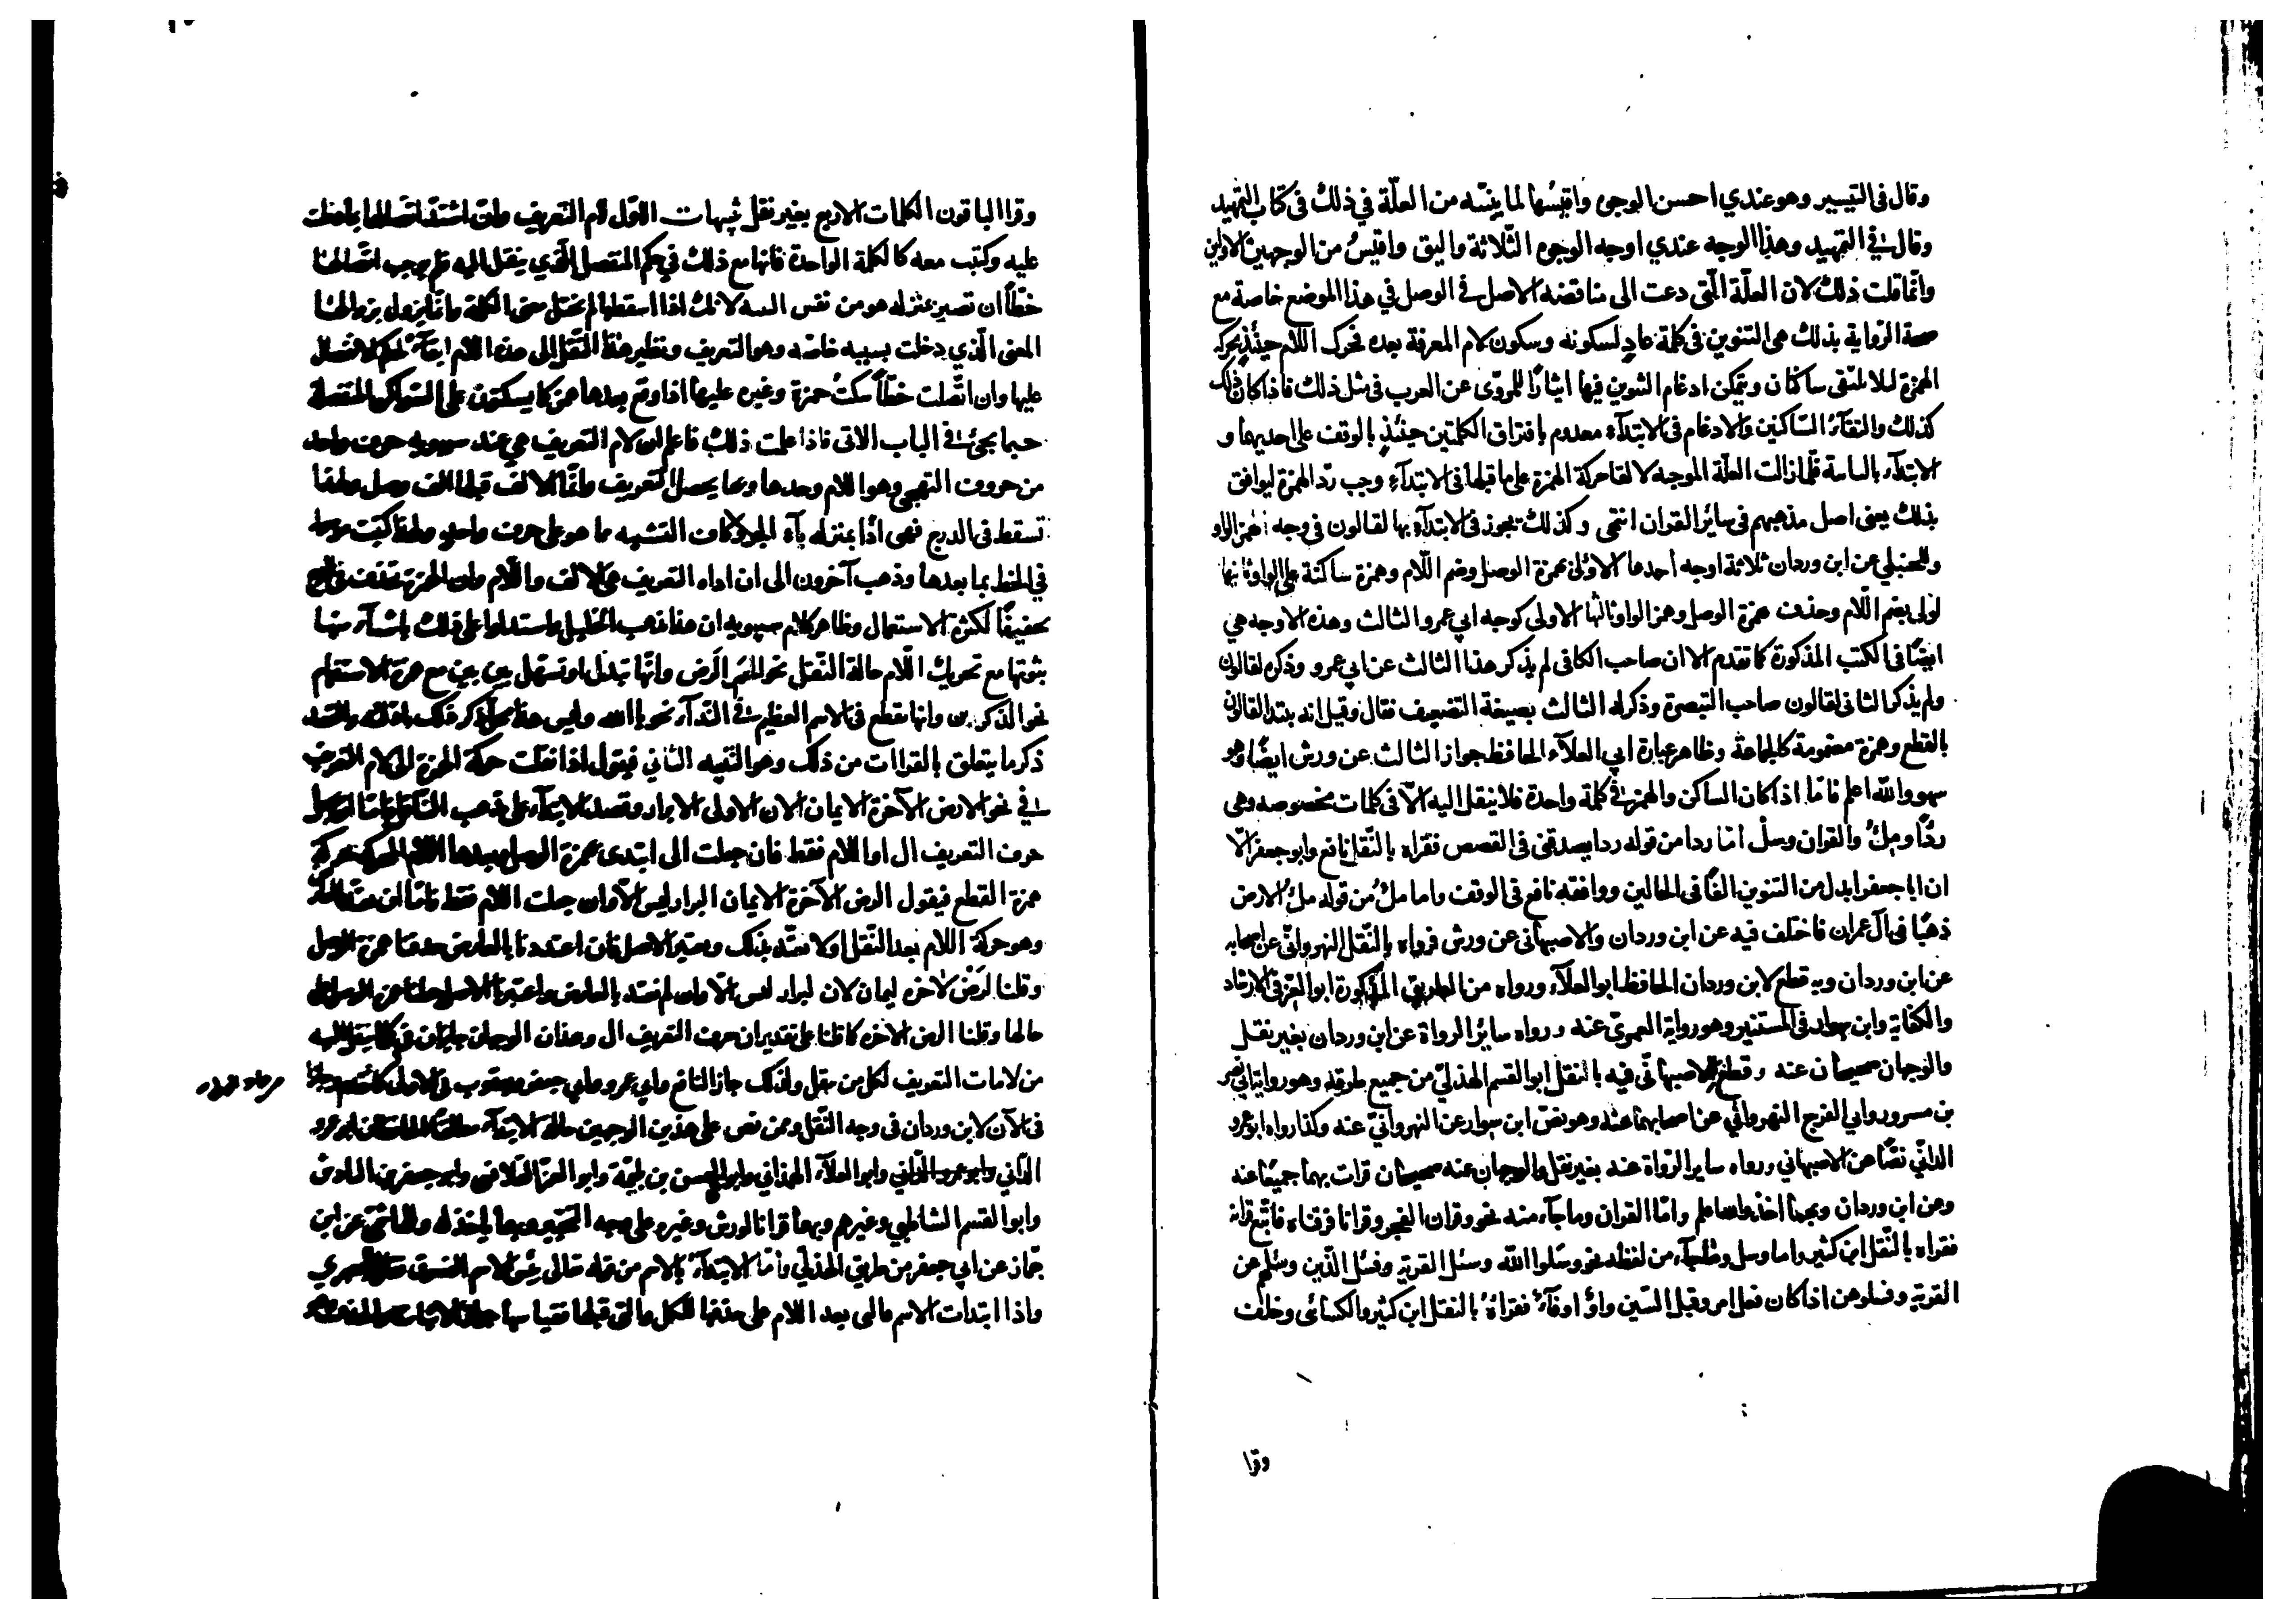 وقال في التيسير وهو عندي احسن الوجوه واقيسها لما بينته من العلّة في ذلك في كتاب التمهيد
وقال في التمهيد وهذا الوجه عندي اوجه الوجوه الثلاثة واليق واقيس من الوجهين الاولين
وانما قلت ذلك لان العلّة الّتي دعت الى مناقضة الاصل في الوصل في هذا الموضع خاصة مع
صحة الرواية بذلك هي التنوين في كلمة عادٍ لسكونه وسكون لام المعرفة بعده فحرك اللام حينئذٍ بحركة
الهمزة لئلا يلتقى ساكنان ويتمكن ادغام التنوين فيها ايثارًا للمروّى عن العرب في مثل ذلك فاذا كان ذلك
كذلك والتقآء السّاكنين والادغام في الابتدآء معدوم بافتراق الكلمتين حينئذٍ بالوقف على احديهما و
الابتدآء بالثانية فلما زالت العلّة الموجبة لالقا حركة الهمزة على ما قبلها في الابتدآء وجب ردّ الهمزة ليوافق
بذلك يعني اصل مذهبهم في سائر القران انتهى وكذلك يجوز في الابتدآء بها لقالون في وجه همز الواو
وللحنبلي عن ابن وردان ثلاثة اوجه احدها الاولى بهمزة الوصل وضم اللّام وهمزة ساكنة على الواو ثانيها
لولى بضم اللّام وحذف همزة الوصل وهمز الواو ثالثها الاولى كوجه ابي عمرو الثالث وهذه الاوجه هي
ايضًا في الكتب المذكورة كما تقدم الا ان صاحب الكافي لم يذكر هذا الثالث عن ابي عمرو وذكره لقالون
ولم يذكر الثاني لقالون صاحب التبصرة وذكر له الثالث بصيغة التضعيف فقال وقيل انه يبتدا لقالون
بالقطع وهمزة مضمومة كالجماعة وظاهر عبارة ابي العلآء الحافظ جواز الثالث عن ورش ايضًا وهو
سهو والله اعلم فامّا اذا كان الساكن والهمز في كلمة واحدة فلا ينقل اليه الّا في كلمات مخصوصه وهي
ردًا وملٌ والقران وسل امّا ردا من قوله ردا يصدقني في القصص فقراه بالنّقل نافع وابو جعفر الّا
ان ابا جعفر ابدل من التنوين الفًا في الحالين ووافقه نافع في الوقف واما ملٌ من قوله ملُ الارض
ذهبًا في آل عمران فاختلف فيه عن ابن وردان والاصبهاني عن ورش فرواه بالنّقل النهرواني عن اصحابه
عن ابن وردان وبه قطع لابن وردان الحافظ ابو العلآء ورواه من الطريق المذكورة ابو العز في الارشاد
والكفاية وابن سوار في المستنير وهو رواية العمريّ عنه ورواه سائر الرواة عن ابن وردان بغير نقل
والوجهان صحيحان عنه وقطع للاصبهانّي فيه بالنقل ابو القسم الهذلّي من جميع طرقه وهو رواية ابي نصر
بن مسرور وابي الفرج النهرواني عن اصحابهما عنه وهو نصّ ابن سوار عن النهرواني عنه وكذا رواه ابو عمرو
الدانّي نصًّا عن الاصبهاني ورواه سائر الرّواة عنه بغير نقل والوجهان عنه صحيحان قرات بهما جميعًا عنه
وعن ابن وردان وبهما آخذ والله اعلم وامّا القران وما جآء منه نحو وقران الفجر وقرانا فرقناه فاتّبع قرانه
فقراه بالنّقل ابن كثير واما وسل وما جآء من لفظه نحو وسلوا الله وسئل القرية وفسئل الّذين وسئلهم عن
القرية وفسلوهن اذا كان فعل امر وقبل السّين واوٌ او فآءٌ فقراهُ بالنقل ابن كثير والكسائي وخلف
وقرا
وقرا الباقون الكلمات الاربع بغير نقل تنبيهات الاوّل لام التعريف وان اشتد اتّصالها بما دخلت
عليه وكتب معه كالكلمة الواحدة فانها مع ذلك في حكم المنفصل الّذي ينقل اليه فلم يوجب اتّصالها
خطًّا ان تصير بمنزله ما هو من نفس البنيه لانك اذا اسقطتها لم يختل معنى الكلمة وانّما يزول بزوالها
المعنى الّذي دخلت بسببه خاصّه وهو التعريف ونظير هذا النّقل الى هذه اللام ابقآء لحكم الانفصال
عليها وان اتّصلت خطًّا سكتُ حمزة وغيره عليها اذا وقع بعدها همز كما يسكتون على السّواكن المنفصلة
حسبما يجئ في الباب الاتي فاذا علمت ذلك فاعلم ان لام التعريف هي عند سيبويه حرف واحد
من حروف التهجي وهو اللام وحدها وبها يحصل التعريف وانّما الالف قبلها الف وصل ولهذا
تسقط في الدرج فهي اذًا بمنزله بآء الجر وكاف التشبيه مما هو على حرف واحد ولهذا كتبت موصولة
في الخط بما بعدها وذهب آخرون الى ان اداه التعريف هي الالف واللّام وان الهمزة تحذف في الدرج
تخفيفًا لكثرة الاستعمال وظاهر كلام سيبويه ان هذا مذهب الخليل واستدلوا على ذلك باشيآء منها
ثبوتها مع تحريك اللّام حالة النّقل نحو الَحمر الَرض وانّها تبدل او تسهل بين بين مع همزة الاستفهام
نحو آلذكرين وانها تقطع في الاسم العظيم في النّدآء نحو يا الله وليس هذا محل ذكر ذلك بادلته والقصد
ذكر ما يتعلق بالقراات من ذلك وهو التنبيه الثاني فنقول اذا نقلت حركة الهمزة الى لام التعريف
في نحو الارض الآخرة الايمان الان الاولى الابرار وقصد الابتدآء على مذهب النّاقل فامّا ان يجعل
حرف التعريف ال او اللام فقط فان جعلت ال ابتدى بهمزة الوصل وبعدها اللّام المحركة بحركة
همزة القطع فيقول الرض الآخرة الايمان البرار ليس الّا وان جعلت اللام فقط فامّا ان يعتدّ بالعارض
وهو حركة اللام بعد النّقل او لا يعتد بذلك ويعتبر الاصل فان اعتددنا بالعارض حذفنا همزة الوصل
وقلنا لَرض لاخره ليمان لان لبرار ليس الّا وان لم نعتد بالعارض واعتبرنا الاصل جعلنا همزة الوصل على
حالها وقلنا الرض الاخره كما قلنا على تقدير ان حرف التعريف ال وهذان الوجهان جايزان في كل ما ينقل اليه
من لامات التعريف لكل من ينقل ولذلك جاز النافع وابي عمرو وابي جعفر ويعقوب في الاولى كما تقدم وجاز
في الآن لابن وردان في وجه النّقل وممن نص على هذين الوجهين حالة الابتدآء مطلقًا الحافظان ابو عمرو
الدّاني وابو عمرو الدّاني وابو العلآء الهمذاني وابو الحسن بن بليمة وابو العزّ القلانسي وابو جعفر بن الباذش
وابو القسم الشاطبي وغيرهم وبهما قرانا لورش وغيره على وجه التخيير وبهما ناخذ له وللهاشمي عن ابن
جمّاز عن ابي جعفر من طريق الهذلّي وامّا الابتدآء بالاسم من قوله تعالى بئس الاسم الفسوق فقال الجعبري
واذا ابتدات الاسم فالتي بعد اللام على حذفها للكل والتي قبلها فقياسها جواز الاثبات والحذف